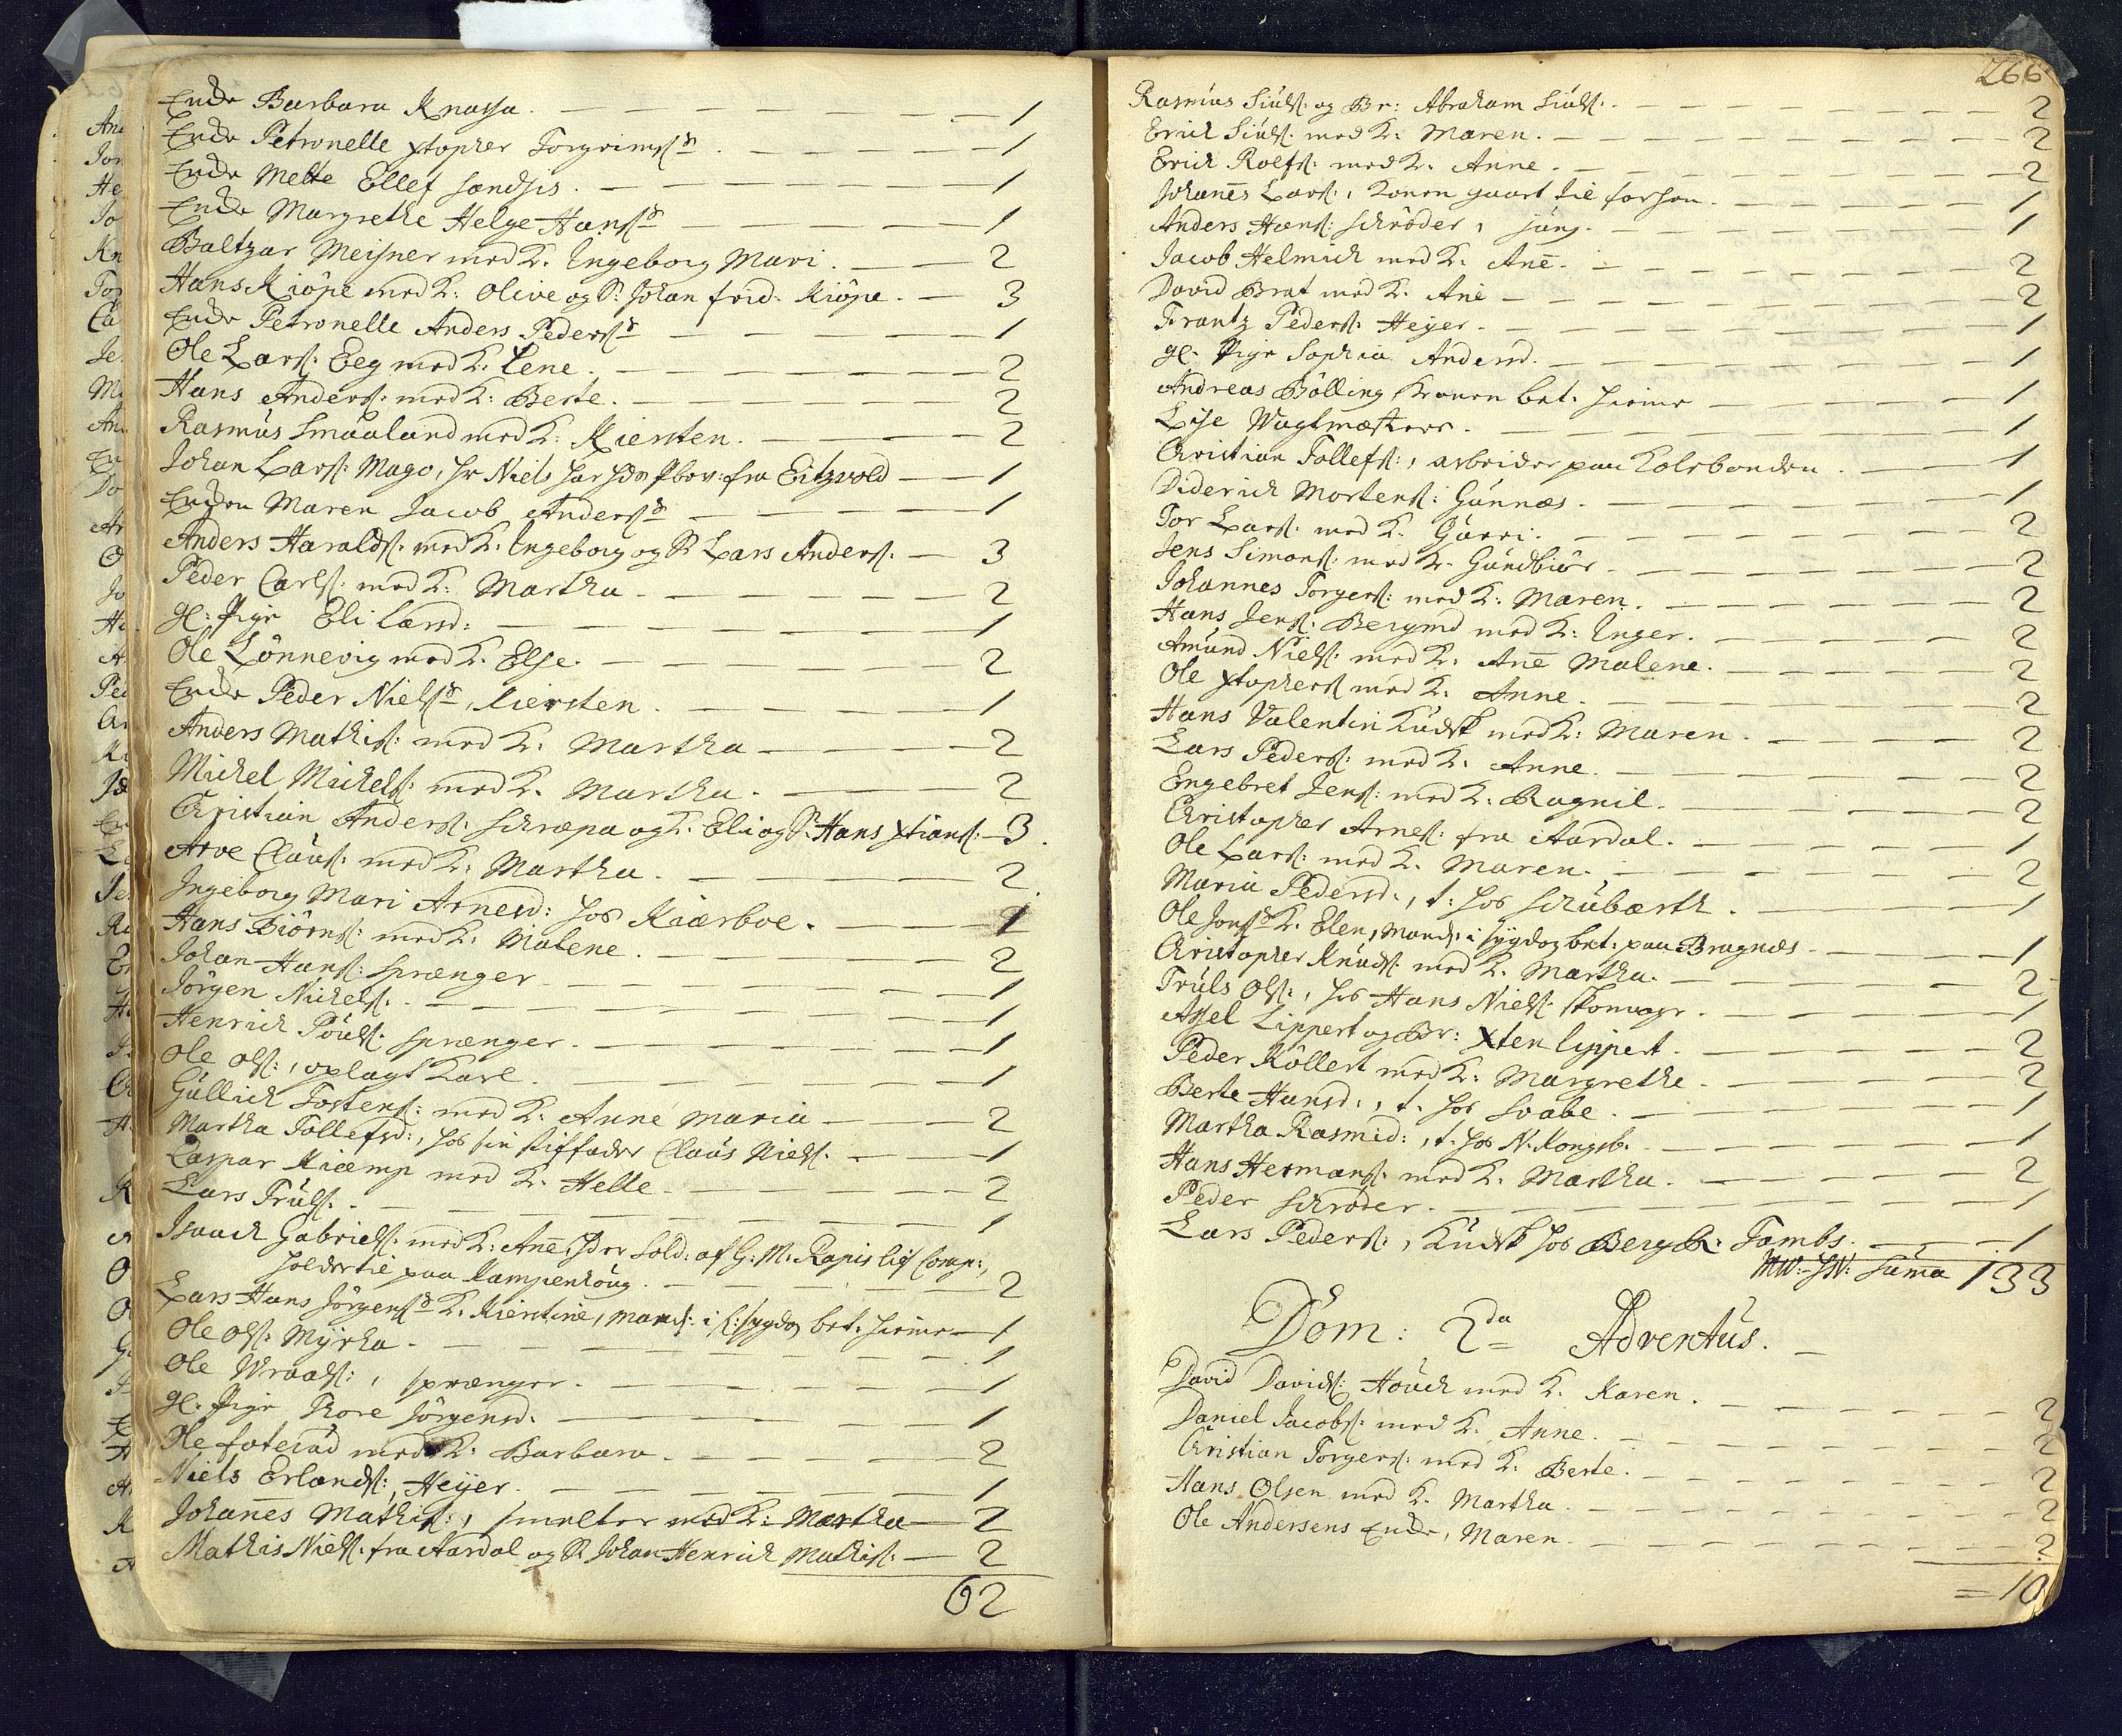 Encke Barbara Knassa. 1
Encke Petronelle xtopher Torgrimss 1
Encke Mette Ellef 1
Encke Margrethe Helge Hanss 1
Baltzar Meisner med K. Ingeborg Mari. 2
Hans Kiöpe med K: Olive og S: Johan frid. Kiöpe. 3
Encke Petronelle Anders Pederss 1
Ole Lars: Eeg med K: Lene. 2
Hans Anders: med K: Berte. 2
Rasmus Smaaland med K: Kiersten. 2
Johan Lars: Mago, hr Niels fra Eitzvold 1
Encken Maren Jacob Anderss 1
Anders Haralds: med K: Ingeborg og S Lars Anders: 3
Peder Carls: med K: Martha. 2
gl: Pige Eli Larsd: 1
Ole Lönnevig med K. Else. 2
Encke Peder Nielss, Kiersten. 1
Anders Mathis: med K: Martha 2
Michel Michels: med K. Martha. 2
Christian Anders: Schræpa og K. Eli og S: Hans Xtians: 3.
Arve Claus: med K: Martha. 2.
Ingeborg Mari Arnesd: hos Kiærboe. 1
Hans Biörns: med K: Malene. 2
Johan Hans: sprænger 1
Jörgen Nichels: 1
Henrich Pouls: sprænger. 1
Ole Ols:, oplagt Karl. 1
Gullich Tostens: med K. Anne Maria 2
Martha Tollefsd:, hos sin stiffader Claus Niels: 1
Caspar Kiæmp med K. Helle. 2
Lars Truls: 1
Isaach Gabriels: med K: Anē, Sold: af G: M: Rapis lif Comp:,
holder til paa Kampenhoug. 2
Lars Hans Jörgenss K. Kierstine, Mand: i sygdog bet. hieme 1
Ole Ols: Myrha. 1
Ole Wraals:, sprænger. 1
gl. Pige Thore Jörgensd. 1
Ole foterud med K: Barbara. 2
Niels Erlands:, Heyer. 1
Johanēs Mathis:, smelter med K: Martha 2
Mathis Niels: fra Aardal og S Johan Henrich Mathis: 2
62
266
Rasmus Siuls: og Br: Abraham Siuls: 2
Erich Siuls: med K: Maren. 2
Erich Roefs: med K: Anne. 2
Johanēs Lars:, Konen gaart til forhen. 1
Anders Hans: Schröder, jung. 1
Jacob Helmich med K. Anē. 2
David Brat med K. Anē 2
Frantz Peders: Heyer. 1
gl. Pige Sophia Andersd. 1
Andreas Bölling, Konen bet. hieme 1
Lise Wagtmæsters. 1
Christian Tollefs:, arbeider paa Kolebonden. 1
Diderich Mortens: Gunnæs. 1
Tor Lars: med K. Gurri. 2
Jens Simons: med K. Gundbiör 2
Johannes Torgers: med K: Maren. 2
Hans Jens: Bergmd med K: Inger. 2
Amund Niels: med K: Anē Malene. 2
Ole xtophers: med K: Anne. 2
Hans Valentin Kudsk med K: Maren. 2
Lars Peders: med K: Anne. 2
Engebret Jens: med K: Ragnil. 2
Christopher Arnes: fra Aardal. 1
Ole Lars: med K. Maren. 2
Maria Pedersd:, t: hos Schubærth. 1
Ole Jonss K. Elen, Mand: i sygdog bet: paa Bragnæs 1
Christopher Knuds: med K. Martha. 2
Truls Ols:, hos Hans Niels: skomager. 1
Assel Lippert og Br: Xten Lippert. 2
Peder Köllert med K: Margrethe. 2
Berte Hansd:, t. hos Svabe. 1
Martha Rasmid:, t. hos N. Kongsb. 1
Hans Hermans: med K. Martha. 2
Peder Schröder. 1
Lars Peders:, Kudsk hos Bergr: Tambs. 1
Suma 133
Dom: 2da Adventus.
David Davids: Houch med K. Karen. 2
Daniel Jacobs: med K. Anne. 2
Christian Torgers: med K. Berte. 2
Hans Olsen med K. Martha. 2
Ole Andersens Encke, Maren. 2
= 10